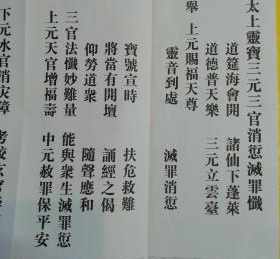 太上靈寶三元三官消愆滅罪懺
道筵海會開 諸仙下蓬萊
道德普天樂 三元立雲臺
舉 上元賜福天尊
靈音到處 滅罪消愆
寶號宣時 扶危救難
將當有開壇 誦經之偈
仰勞道衆 隨聲應和
三官法懺妙難量 能與衆生滅罪愆
上元天官增福壽 中元赦罪保平安
下元水官消災障